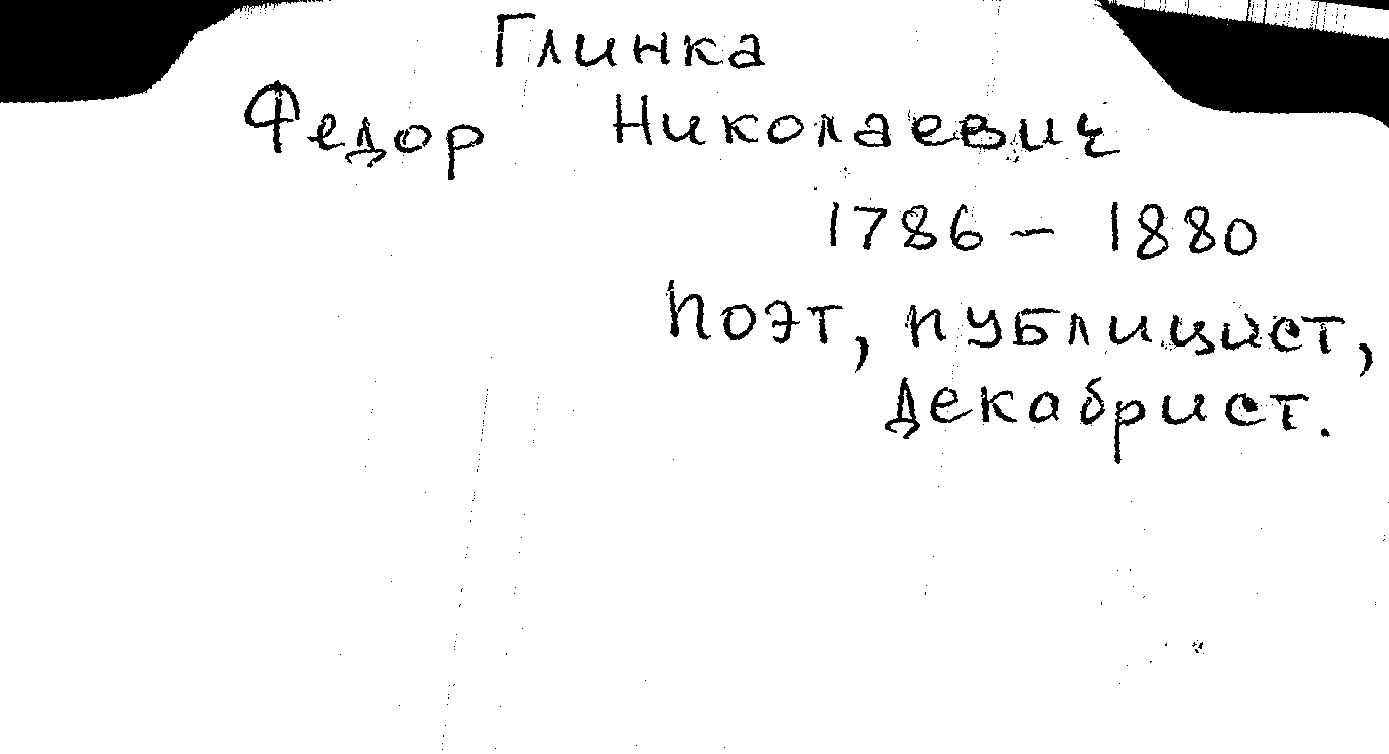 Глинка
Федор Николаевич
1786 – 1880
Поэт, публицист,
декабрист.